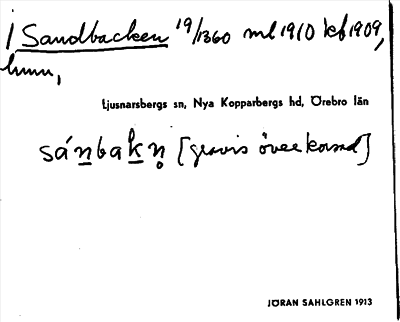 i Sandbacken 19/1360 ml 1910 kf 1909,
hmn,
Ljusnarsbergs sn, Nya Kopparbergs hd, Örebro län
sánbakn̥ [gravis över korsad]
JÖRAN SAHLGREN 1913